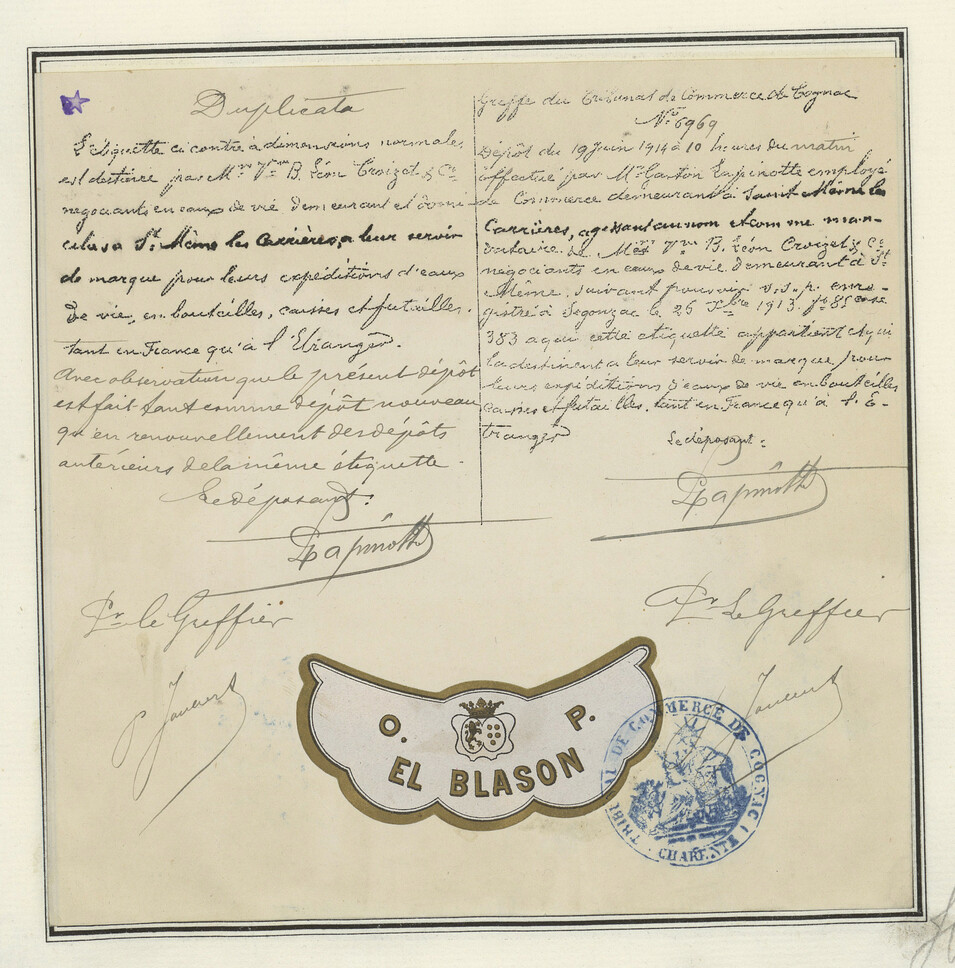 Duplicata
L'étiquette ci contre à dimensions normales
est destinée par Mrs Vve B. Léon Croizet & Cie
négociants en eaux de vie demeurant et domi-
ciliés à St Même les Carrières, a leur servir
de marque pour leurs expéditions d'eaux
de vie, en bouteilles, caisses et futailles.
tant en France qu'à l'Etranger.
Avec observation que le présent dépôt
est fait tant comme dépôt nouveau
qu'en renouvellement des dépôts
antérieurs de la même étiquette.
Le déposant:
Pr le Greffier
Greffe du Tribunal de Commerce de Cognac
No 6969
Dépôt du 19 Juin 1914 à 10 heures du matin
effectué par Mr Gaston Lapinotte employé
de Commerce demeurant à Saint Même les
Carrières, agissant au nom et comme man-
dataire de Mrs Vve B. Léon Croizet & Cie
négociants en eaux de vie demeurant à St
Même, suivant pouvoir s.s.p. enre-
gistré à Segonzac le 26 Xbre 1913. fo 85 case
383 a qui cette étiquette appartient et qui
la destinent a leur servir de marque pour
leurs expéditions d'eaux de vie en bouteilles
caisses et futailles. tant en France qu'à l'E-
tranger
Le déposant:
Pr Le Greffier
O. P.
EL BLASON
TRIBUNAL DE COMMERCE DE COGNAC
CHARENTE